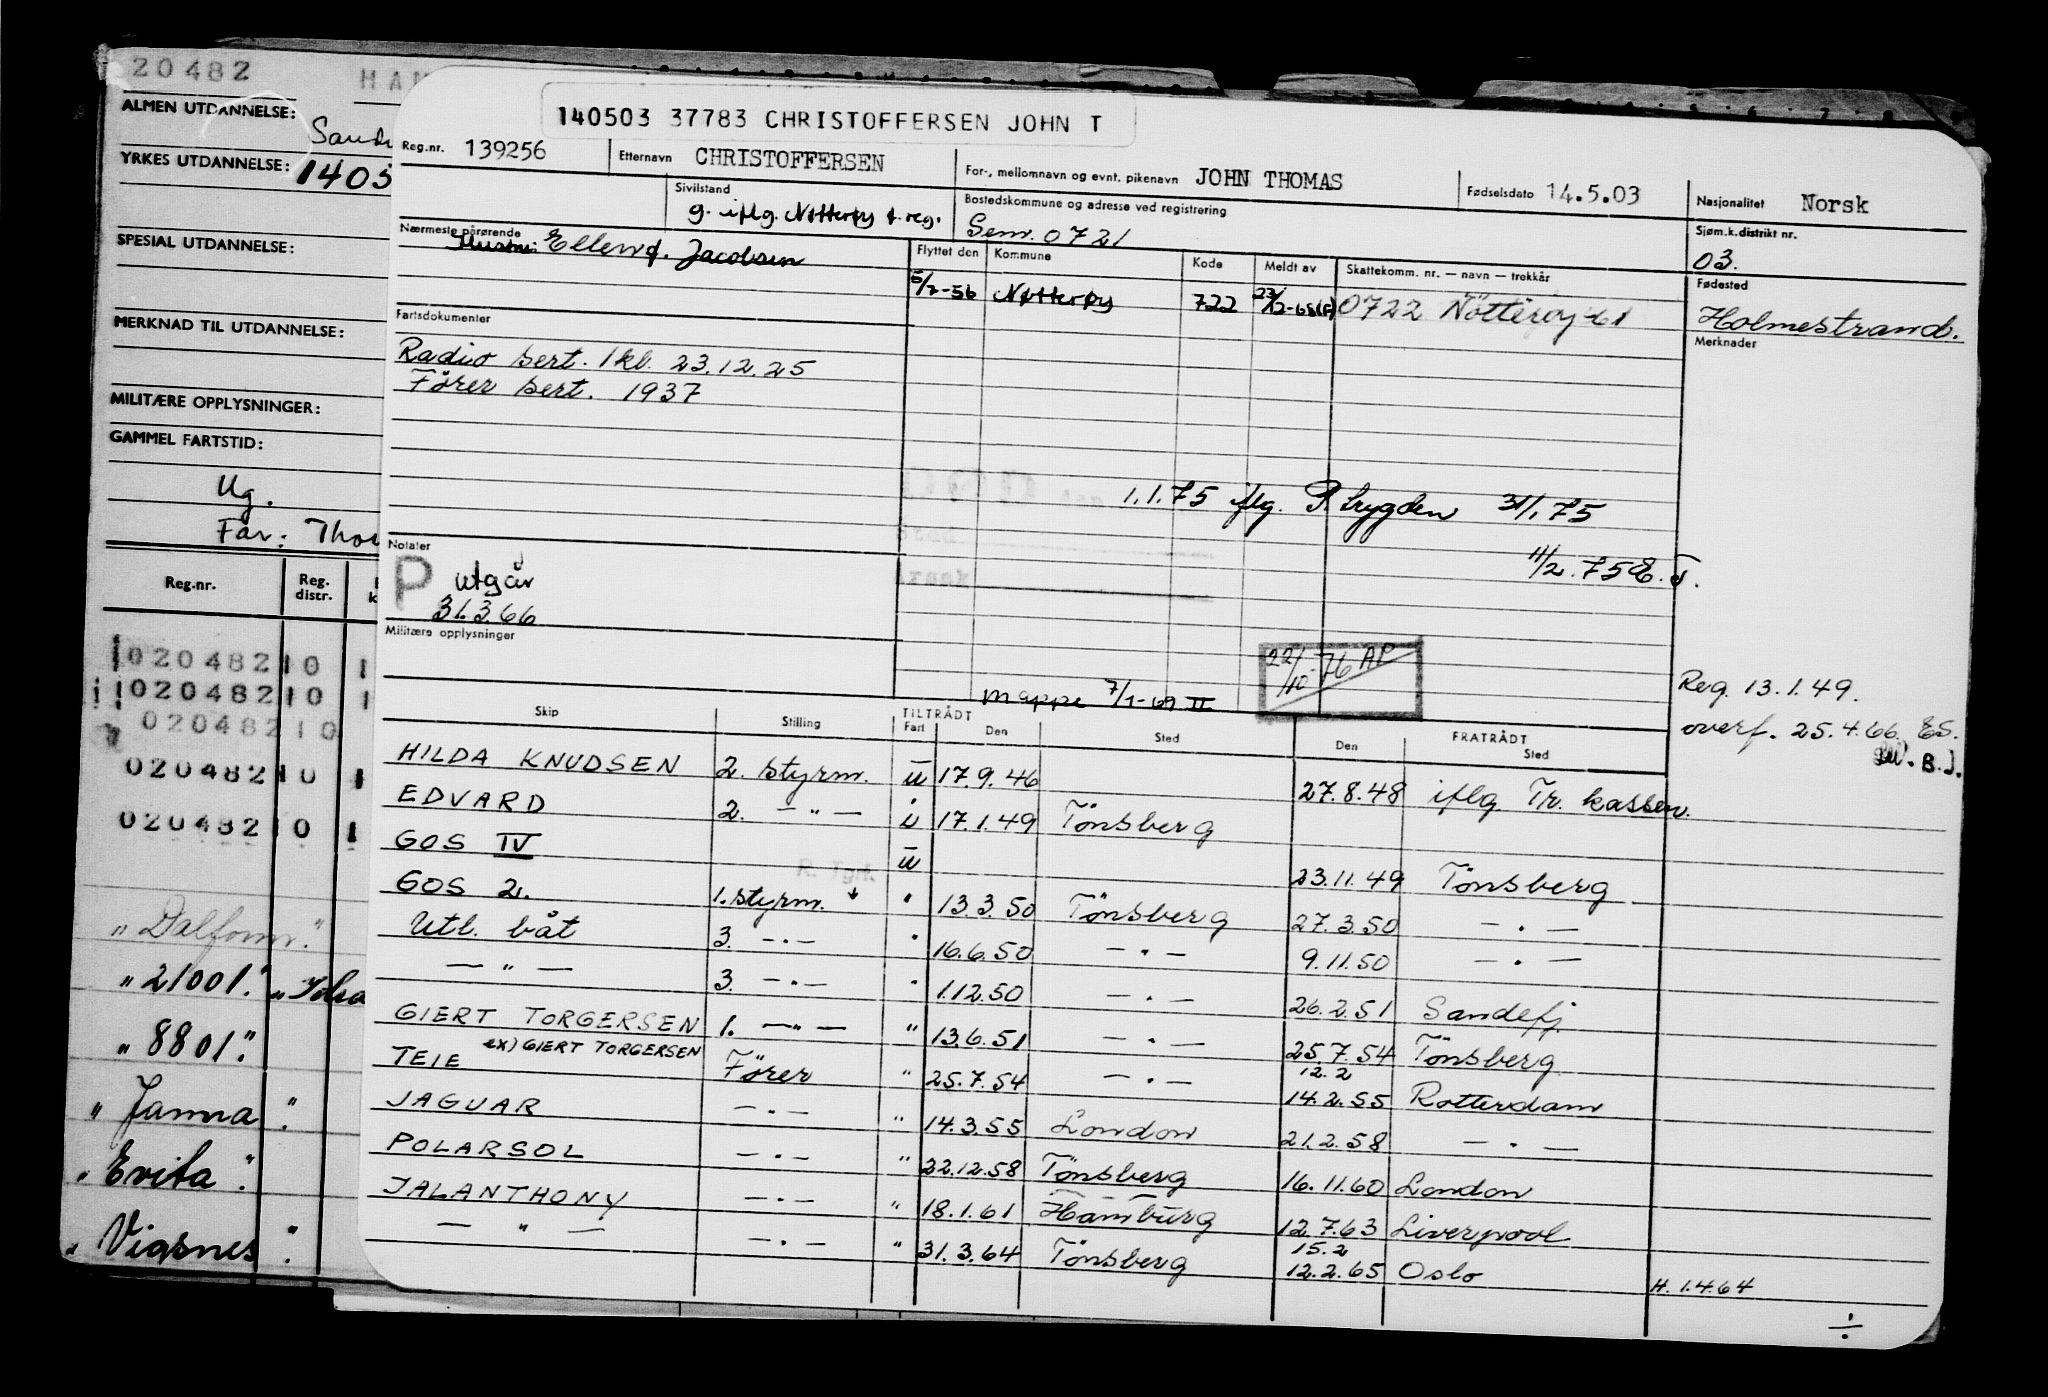 20482
HAN
ALMEN UTDANNELSE:
YRKES UTDANNELSE: 1405
SPESIAL UTDANNELSE:
MERKNAD TIL UTDANNELSE:
MILITÆRE OPPLYSNINGER:
GAMMEL FARTSTID:
Ug.
Far: Thor
Reg.nr. Reg. distr.
0204821 0 1
0204821 0 1
0204821 0
0204821 0 1
0204821 0 1
"21001"
"8801"
"Janna"
"Evita"
"Vigsnes"
140503 37783 CHRISTOFFERSEN JOHN T
Reg.nr. 139256 Etternavn CHRISTOFFERSEN For-, mellomnavn og evnt. pikenavn JOHN THOMAS Fødselsdato 14.5.03 Nasjonalitet Norsk
Sivilstand g. iflg. Nøtterøy f. reg. Bostedskommune og adresse ved registrering Sem. 0721 Sjøm.k.distrikt nr. 03.
Nærmeste pårørende Hustru: Ellen f. Jacobsen
Flyttet den Kommune Kode Meldt av Skattekomm. nr. — navn — trekkår Fødested
5/7-56 Nøtterøy 722 0722 Nötteröy 61 Holmestrand.
Merknader
Fartsdokumenter
Radio sert. 1kl. 23.12.25
Förer sert. 1937
1.1.75 iflg. P. trygden 31/1.75
11/2.75
Notater
P utgår
31.3.66
Militære opplysninger
22/10-76 AP
mappe 7/1-69 II
Reg. 13.1.49.
overf. 25.4.66.
B.J.
Skip Stilling TILTRÅDT Fart Den Sted FRATRÅDT Den Sted
HILDA KNUDSEN 2. styrm. u 17.9.46 27.8.48 iflg Tr. kassen.
EDVARD 2. — " — i 17.1.49 Tönsberg
GOS IV u 23.11.49 Tönsberg
R. Tgrf.
GOS 2. 1. styrm. " 13.3.50 Tönsberg 27.3.50 — " —
Utl. båt 3. — " — " 16.6.50 — " — 9.11.50 — " —
— " — 3. — " — " 1.12.50 — " — 26.2.51 Sandefj.
GIERT TORGERSEN 1. — " — " 13.6.51 — " — 25.7.54 Tönsberg
TEIE ex) GIERT TORGERSEN Förer " 25.7.54 — " — 12.2 14.2.55 Rotterdam
JAGUAR — " — " 14.3.55 London 21.2.58 — " —
POLARSOL — " — " 22.12.58 Tönsberg 16.11.60 London
JALANTHONY — " — " 18.1.61 Hamburg 12.7.63 Liverpool
— " — — " — " 31.3.64 Tönsberg 15.2 12.2.65 Oslo H. 1.4.64
÷